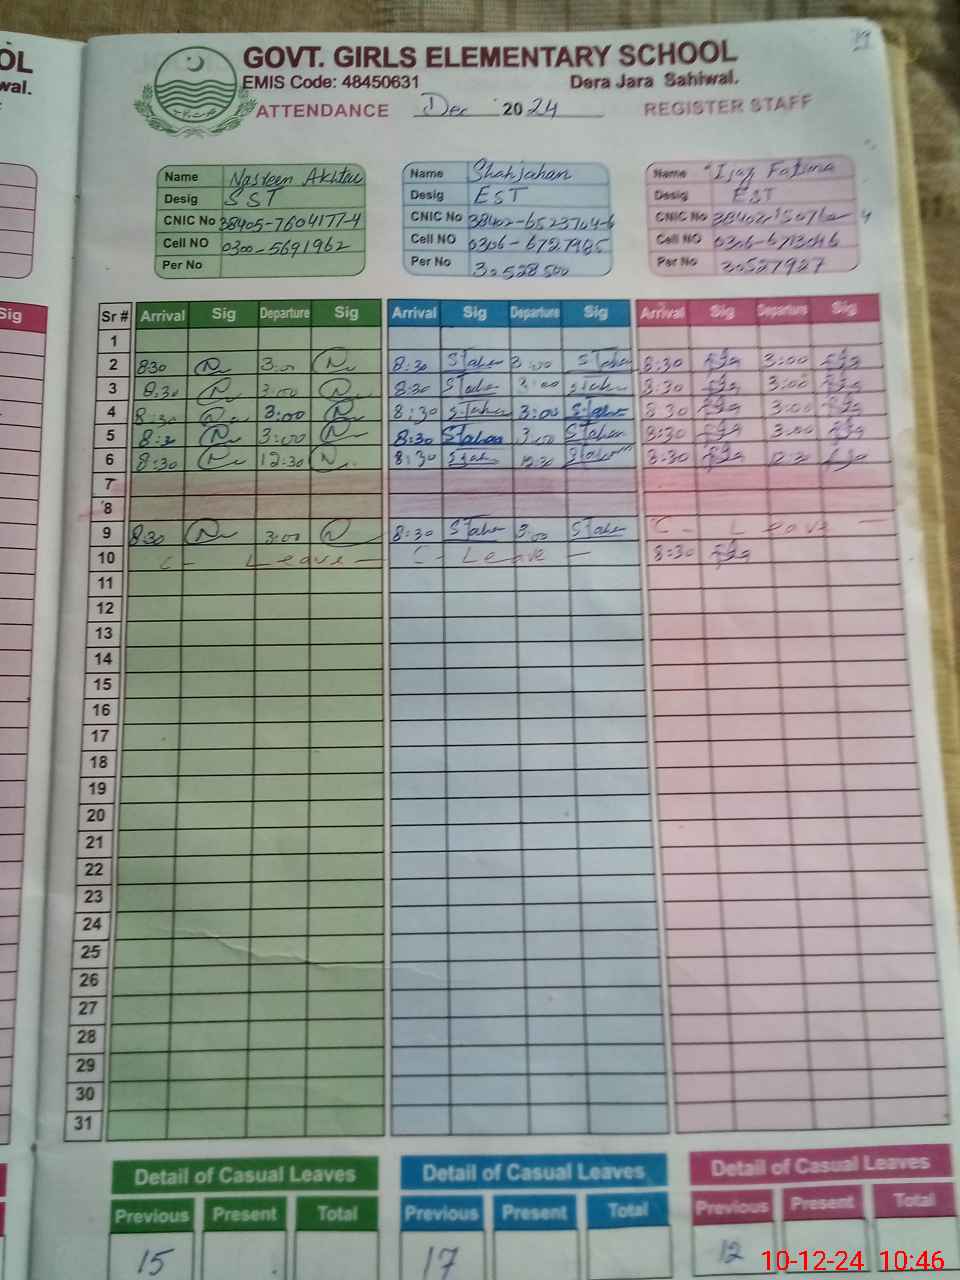 OL
wal.
Sig
19
GOVT. GIRLS ELEMENTARY SCHOOL
EMIS Code: 48450631 Dera Jara Sahiwal.
ATTENDANCE Dec 2024 REGISTER STAFF
Name Nasreen Akhtar
Desig SST
CNIC No 38405-7604177-4
Cell NO 0300-5691962
Per No
Name Shahjahan
Desig EST
CNIC No 38402-6523704-6
Cell NO 0306-6727985
Per No 30528500
Name Ijaz Fatima
Desig EST
CNIC No
Cell NO
Per No 30527927
Sr # Arrival Sig Departure Sig Arrival Sig Departure Sig Arrival Sig Departure Sig
1
2 8:30 3:00 8:30 3:00 8:30 3:00
3 8:30 3:00 8:30 3:00 8:30 3:00
4 8:30 3:00 8:30 3:00 8 30 3:00
5 8:30 3:00 8:30 3:00 8:30 3:00
6 8:30 12:30 8:30 12:30 8:30 12:30
7
8
9 8:30 3:00 8:30 3:00 C - Leave -
10 C - Leave - C - Leave - 8:30
11
12
13
14
15
16
17
18
19
20
21
22
23
24
25
26
27
28
29
30
31
Detail of Casual Leaves Detail of Casual Leaves Detail of Casual Leaves
Previous Present Total Previous Present Total Previous Present Total
15 17 12
10-12-24 10:46